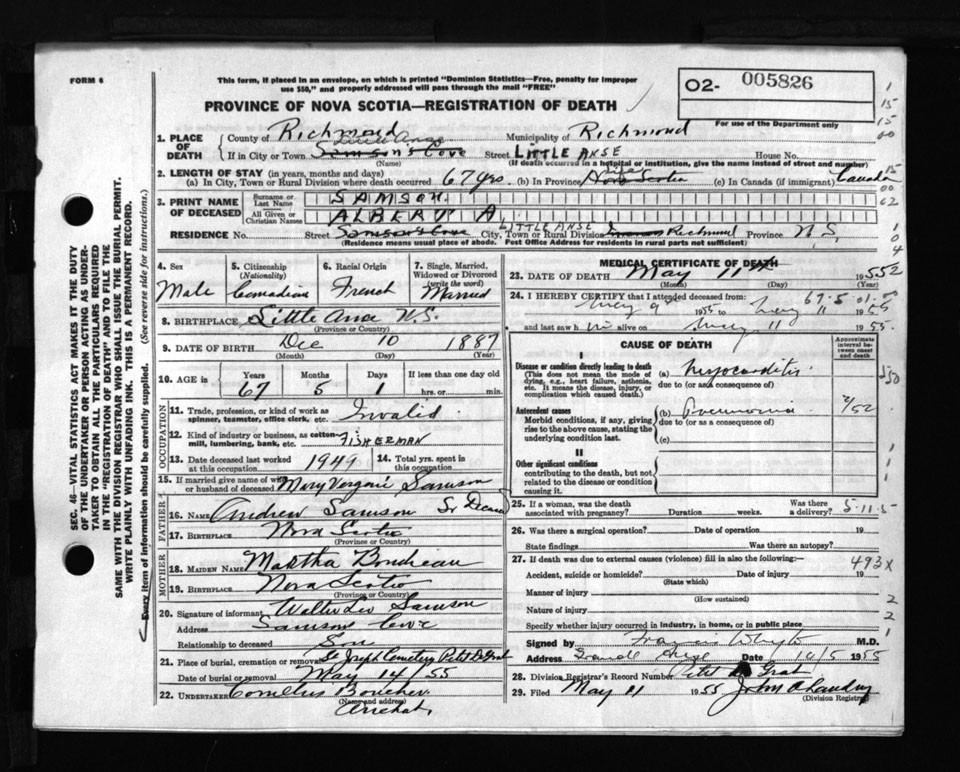 FORM 6
This form, if placed in an envelope, on which is printed "Dominion Statistics—Free, penalty for improper
use $50," and properly addressed will pass through the mail "FREE"
PROVINCE OF NOVA SCOTIA—REGISTRATION OF DEATH
O2- 005826
For use of the Department only
SEC. 46—VITAL STATISTICS ACT MAKES IT THE DUTY
OF THE UNDERTAKER OR PERSON ACTING AS UNDER-
TAKER TO OBTAIN ALL THE PARTICULARS REQUIRED
IN THE "REGISTRATION OF DEATH" AND TO FILE THE
SAME WITH THE DIVISION REGISTRAR WHO SHALL ISSUE THE BURIAL PERMIT.
WRITE PLAINLY WITH UNFADING INK. THIS IS A PERMANENT RECORD.
Every item of information should be carefully supplied. (See reverse side for instructions.)
1. PLACE OF DEATH
County of Richmond Municipality of Richmond
Little Anse
If in City or Town Samson's Cove Street LITTLE ANSE House No.
(Name) (If death occurred in a hospital or institution, give the name instead of street and number)
2. LENGTH OF STAY (in years, months and days)
(a) In City, Town or Rural Division where death occurred 67 yrs. (b) In Province Nova Scotia (c) In Canada (if immigrant) Canada
3. PRINT NAME OF DECEASED
Surname or Last Name SAMSON
All Given or Christian Names ALBERT A.
LITTLE ANSE
RESIDENCE No. Street Samson's Cove City, Town or Rural Division Richmond Province N.S.
(Residence means usual place of abode. Post Office Address for residents in rural parts not sufficient)
4. Sex
Male
5. Citizenship
(Nationality)
Canadian
6. Racial Origin
French
7. Single, Married, Widowed or Divorced
(write the word)
Married
8. BIRTHPLACE Little Anse N.S.
(Province or Country)
9. DATE OF BIRTH Dec 10 1887
(Month) (Day) (Year)
10. AGE in
Years Months Days If less than one day
67 5 1 hrs. or min.
11. Trade, profession, or kind of work as
spinner, teamster, office clerk, etc. Invalid
12. Kind of industry or business, as cotton-
mill, lumbering, bank, etc. FISHERMAN
13. Date deceased last worked
at this occupation 1949
14. Total yrs. spent in
this occupation
15. If married give name of wife
or husband of deceased Mary Samson
FATHER
16. NAME Andrew Samson
17. BIRTHPLACE Nova Scotia
(Province or Country)
MOTHER
18. MAIDEN NAME Martha Boudreau
19. BIRTHPLACE Nova Scotia
(Province or Country)
20. Signature of informant Walter Leo Samson
Address Samsons Cove
Relationship to deceased Son
21. Place of burial, cremation or removal St Joseph Cemetery Petit De Grat
Date of burial or removal May 14/55
22. UNDERTAKER Cornelius Boucher
(Name and address)
Arichat
MEDICAL CERTIFICATE OF DEATH
23. DATE OF DEATH May 11th 1955
(Month) (Day) (Year)
24. I HEREBY CERTIFY that I attended deceased from:
May 9th 1955 to May 11 1955
and last saw h im alive on May 11 1955
CAUSE OF DEATH
Approximate interval between onset and death
I
Disease or condition directly leading to death
(This does not mean the mode of dying, e.g., heart failure, asthenia, etc. It means the disease, injury, or complication which caused death.)
(a) Myocarditis
due to (or as a consequence of)
Antecedent causes
Morbid conditions, if any, giving rise to the above cause, stating the underlying condition last.
(b) Pneumonia
due to (or as a consequence of)
(c)
2/52
II
Other significant conditions
contributing to the death, but not related to the disease or condition causing it.
25. If a woman, was the death
associated with pregnancy? Duration weeks. Was there a delivery?
5-11-5
26. Was there a surgical operation? Date of operation 19
State findings Was there an autopsy?
27. If death was due to external causes (violence) fill in also the following:—
493X
Accident, suicide or homicide? Date of injury 19
(State which)
Manner of injury
(How sustained)
Nature of injury
Specify whether injury occurred in industry, in home, or in public place
Signed by Francis M.D.
Address Date 14/5 1955
28. Division Registrar's Record Number Petit de Grat
29. Filed May 21 1955
(Division Registrar)